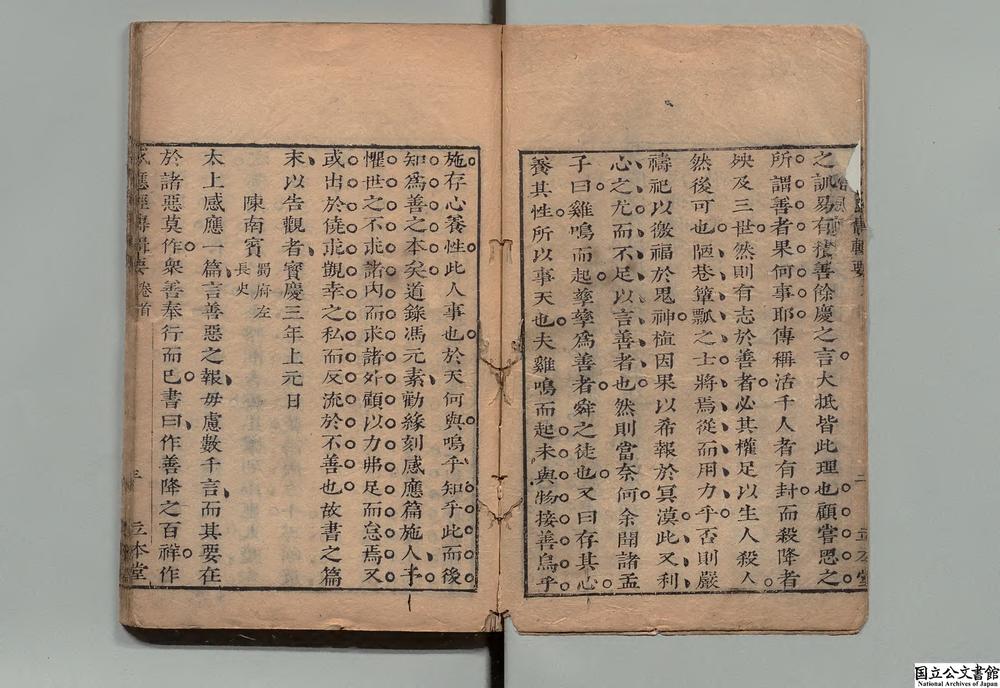 之訓易有積善餘慶之言大抵皆此理也顧嘗思之
所謂善者果何事耶傳稱活千人者有封而殺降者
殃及三世然則有志於善者必其權足以生人殺人
然後可也陋巷簞瓢之士將焉從而用力乎否則嚴
禱祀以徼福於鬼神植因果以希報於冥漠此又利
心之尤而不足以言善者也然則當奈何余聞諸孟
子曰雞鳴而起孳孳爲善者舜之徒也又曰存其心
養其性所以事天也夫雞鳴而起未與物接善烏乎
施存心養性此人事也於天何與嗚乎知乎此而後
知爲善之本矣道錄馮元素勸緣刻感應篇施人予
懼世之不求諸内而求諸外顧以力弗足而怠焉又
或出於僥求觀幸之私而反流於不善也故書之篇
末以告觀者寳慶三年上元日
陳南賓 蜀府左長史
太上感應一篇言善惡之報毋慮數千言而其要在
於諸惡莫作衆善奉行而已書曰作善降之百祥作
感應經 輯要 卷首 三 立本堂
輯要 二 立本堂
国立公文書館
National Archives of Japan